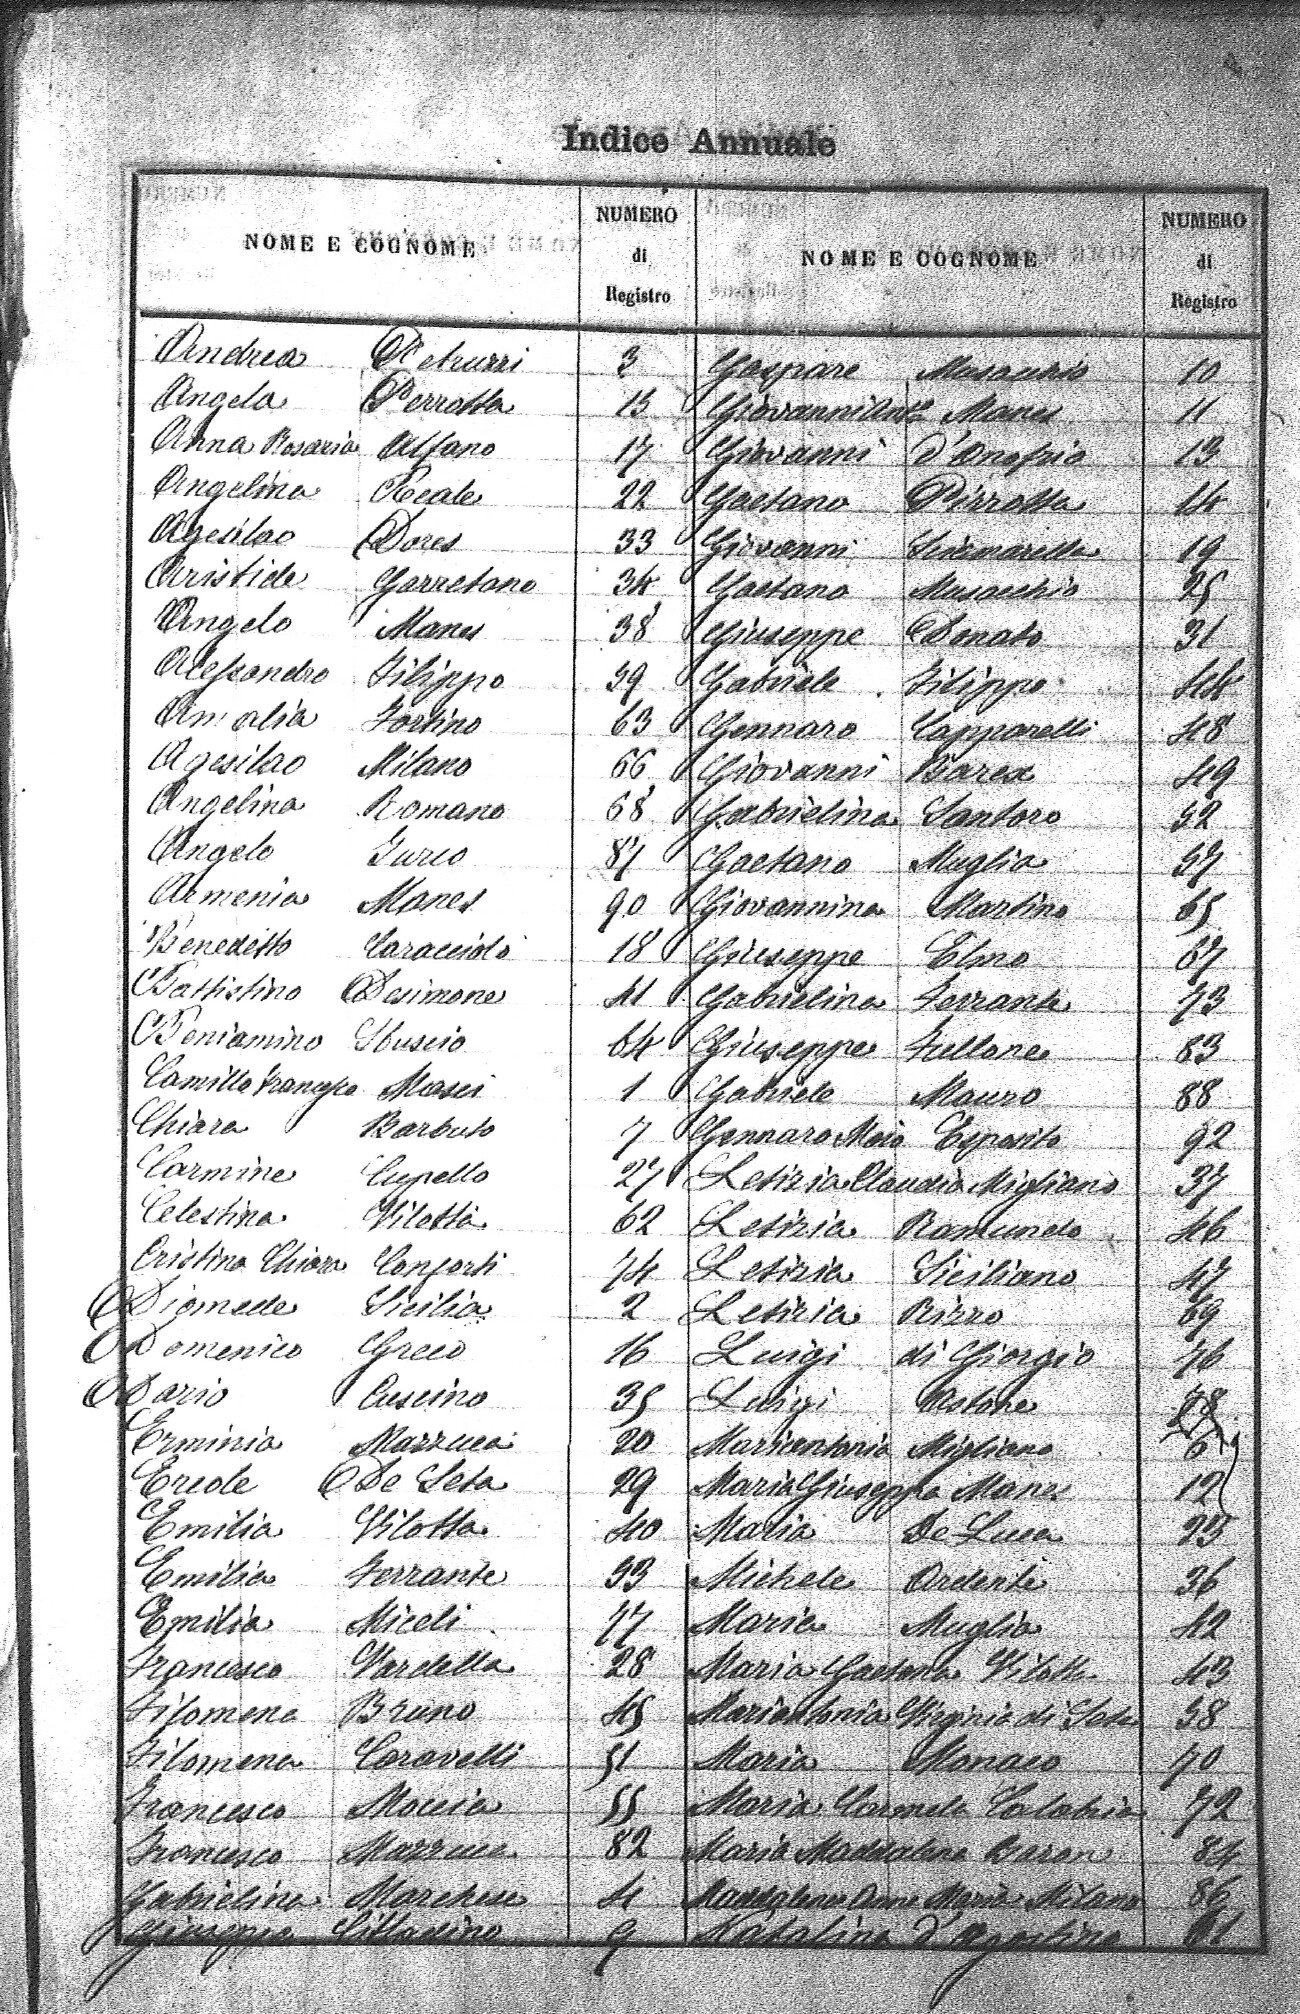 Indice Annuale
NOME E COGNOME
NUMERO
di
Registro
Andrea Petruzzi 3
Angela Perrotta 15
Anna Rosaria Alfano 17
Angelina Reale 22
Agesilao Dores 33
Aristide Garretano 34
Angelo Manes 38
Alessandro Filippo 59
Amalia Fortino 63
Agesilao Milano 66
Angelina Romano 68
Angelo Turco 87
Armenia Manes 90
Benedetto Caracciolo 18
Battistino Desimone 41
Beniamino Sbuscio 64
Camillo Francesco Masci 1
Chiara Barbuto 7
Carmine Cupello 27
Celestina Vilotta 62
Cristina Chiara Conforti 74
Diomede Sicilia 2
Domenico Greco 16
Dario Cuscino 35
Erminia Mazzuca 20
Ercole De Seta 29
Emilia Vilotta 40
Emilia Ferrante 53
Emilia Miceli 77
Francesco Vardella 28
Filomena Bruno 45
Filomena Caravelli 51
Francesco Moccia 55
Francesco Mazzuca 82
Gabrielina Marchese 4
Giuseppe Cittadino 9
NOME E COGNOME
NUMERO
di
Registro
Gaspare Musacchio 10
Manes 11
Giovanni d'Onofrio 13
Gaetano Pirrotta 14
Giovanni 19
Gaetano Musacchio 25
Giuseppe Donato 31
Gabriele Filippo 44
Gennaro Capparelli 48
Giovanni Barea 49
Gabrielina Santoro 52
Gaetano Muglia 57
Giovannina Martino 65
Giuseppe Elmo 67
Gabrielina Ferrante 73
Giuseppe Fullone 83
Gabriele Mauro 88
Gennaro Maio Esposito 92
Letizia Claudia Migliano 37
Letizia Ramundo 46
Letizia Siciliano 47
Letizia Rizzo 69
Luigi di Giorgio 76
Luigi Astone 78
Mariantonia Migliano 6
Maria Giuseppa Manes 12
Maria De Luca 23
Michele Ardente 36
Maria Muglia 42
Maria Gaetana Vilotta 43
Mariantonia Virginia di Seta 58
Maria Monaco 70
Maria Carmela Calabria 72
Maria Maddalena Baron 84
Maddalena Anna Maria Milano 86
Natalina d'Agostino 61